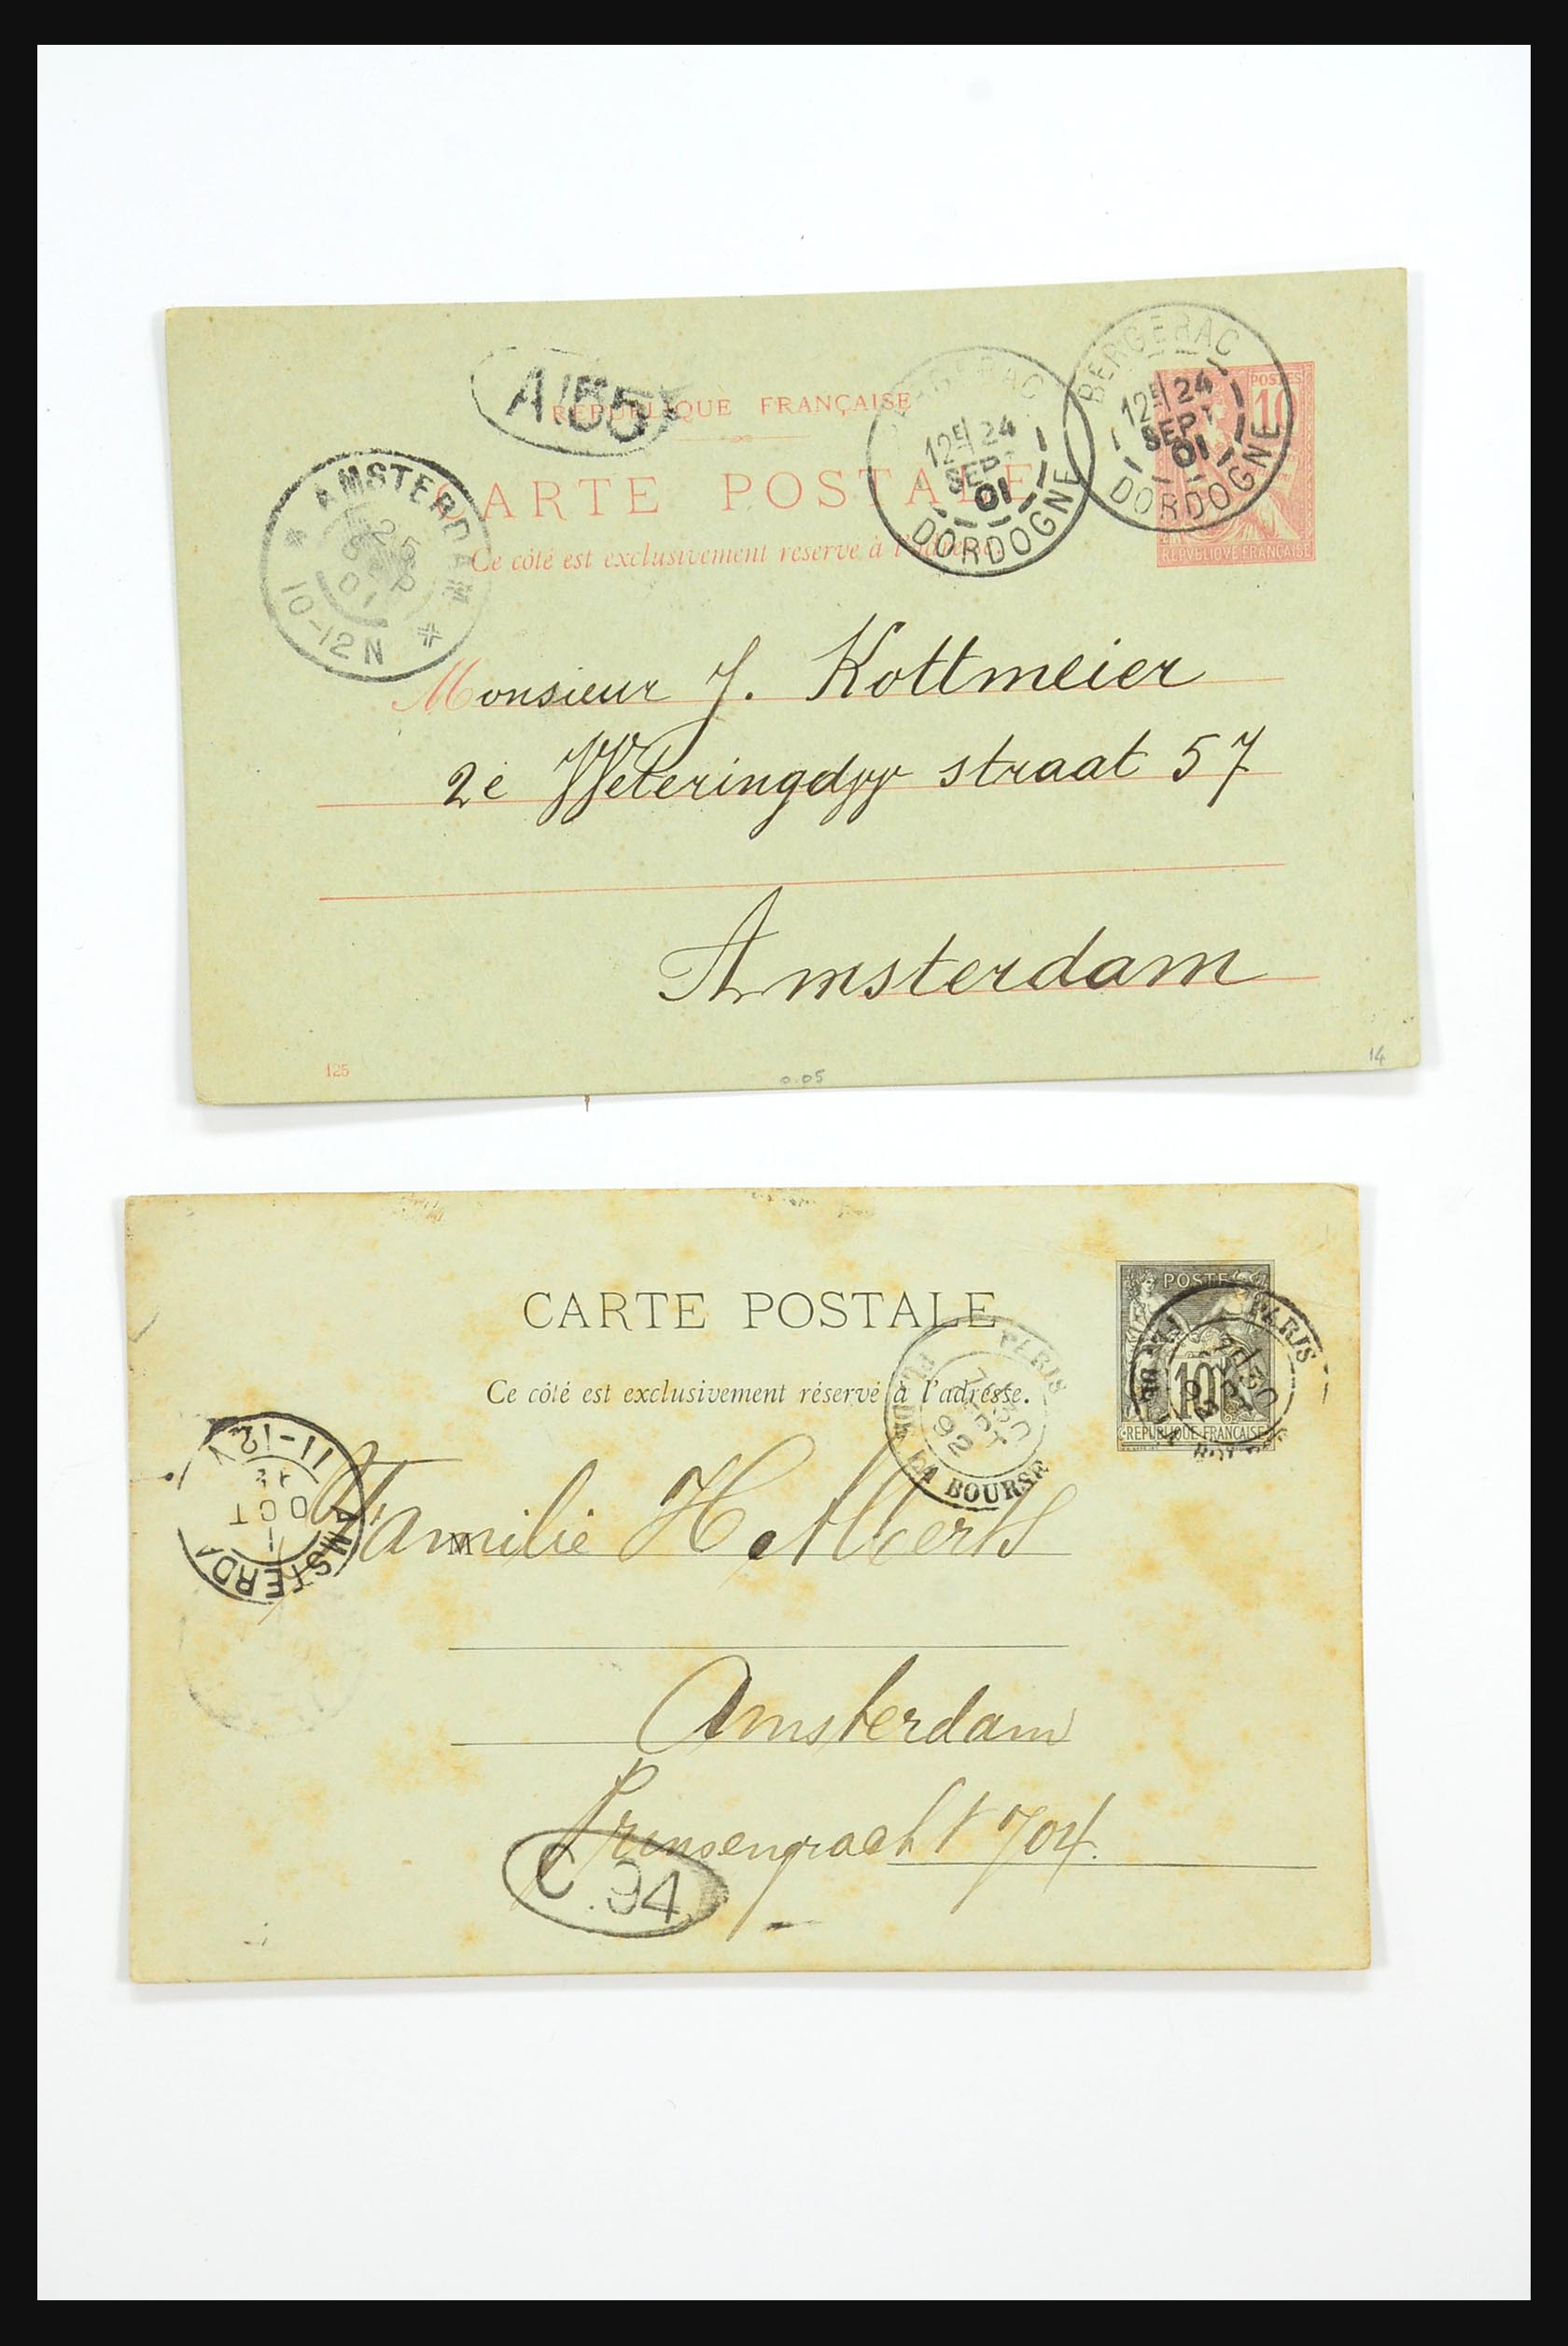 A/55
RÉPUBLIQUE FRANÇAISE
CARTE POSTALE
Ce côté est exclusivement réservé à l'adresse.
BERGERAC
12E 24
SEPT
01
DORDOGNE
BERGERAC
12E 24
SEPT
01
DORDOGNE
POSTES
10
REPVBLIQVE FRANÇAISE
AMSTERDAM
25
SEP
01
10-12N
Monsieur J. Kottmeier
2e Weteringdw straat 57
Amsterdam
125
0.05
14
CARTE POSTALE
Ce côté est exclusivement réservé à l'adresse.
PARIS
30
SEPT
92
PL. DE LA BOURSE
POSTES
10
REPUBLIQUE FRANÇAISE
PARIS
30
11-12V
1
OCT
AMSTERDA
M
Familie H. Alberts
Amsterdam
Prinsengracht 704.
C.94